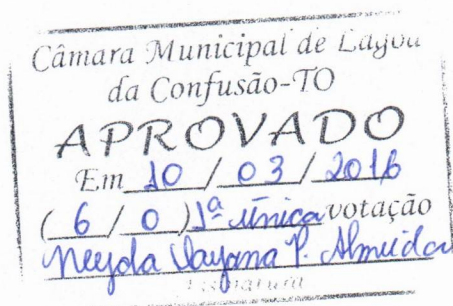 Câmara Municipal de Lagoa
da Confusão-TO
APROVADO
Em 10 / 03 / 2016
( 6 / 0 ) 1ª única votação
P. Almeida
Assinatura